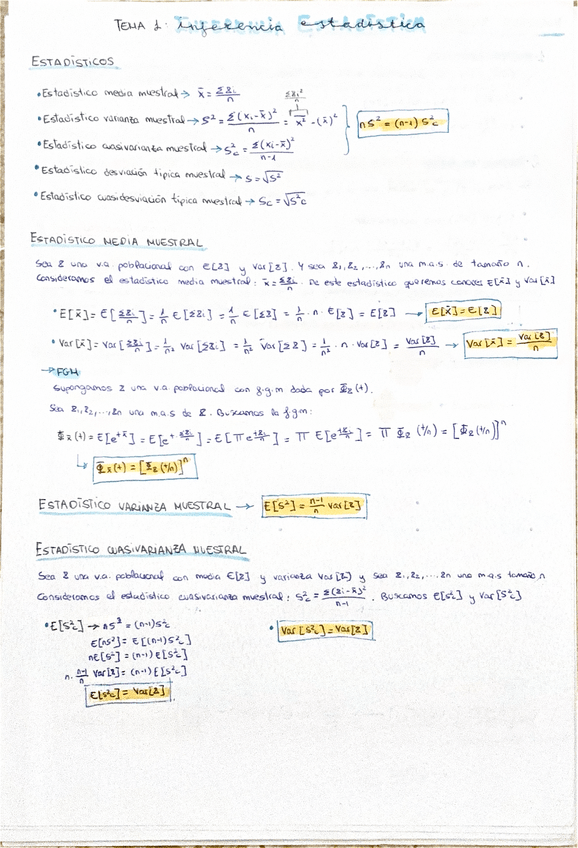 TEMA 1: Inferencia Estadística
ESTADÍSTICOS
• Estadístico media muestral → x̄ = Σξi/n
• Estadístico varianza muestral → S² = Σ(xi - x̄)²/n = x̄² - (x̄)²
Σξi²/n
nS² = (n-1) S²c
• Estadístico cuasivarianza muestral → S²c = Σ(xi - x̄)²/n-1
• Estadístico desviación típica muestral → S = √S²
• Estadístico cuasidesviación típica muestral → Sc = √S²c
ESTADÍSTICO MEDIA MUESTRAL
Sea ξ una v.a. poblacional con E[ξ] y Var[ξ]. Y sea ξ1, ξ2, ..., ξn una m.a.s. de tamaño n.
Consideramos el estadístico media muestral: x̄ = Σξi/n. De este estadístico queremos conocer E[x̄] y Var[x̄]
• E[x̄] = E[Σξi/n] = 1/n E[Σξi] = 1/n Σ E[ξ] = 1/n · n · E[ξ] = E[ξ] → E[x̄] = E[ξ]
• Var[x̄] = Var[Σξi/n] = 1/n² Var[Σξi] = 1/n² Var[Σξ] = 1/n² · n · Var[ξ] = Var[ξ]/n → Var[x̄] = Var[ξ]/n
→ FGM
Supongamos ξ una v.a. poblacional con f.g.m dada por Φξ(t).
Sea ξ1, ξ2, ..., ξn una m.a.s de ξ. Buscamos la f.g.m:
Φx̄(t) = E[e^(t x̄)] = E[e^(t Σξi/n)] = E[Π e^(t ξi/n)] = Π E[e^(t ξi/n)] = Π Φξ(t/n) = [Φξ(t/n)]ⁿ
Φx̄(t) = [Φξ(t/n)]ⁿ
ESTADÍSTICO VARIANZA MUESTRAL → E[S²] = n-1/n Var[ξ]
ESTADÍSTICO CUASIVARIANZA MUESTRAL
Sea ξ una v.a. poblacional con media E[ξ] y varianza Var[ξ] y sea ξ1, ξ2, ..., ξn una m.a.s tamaño n
Consideramos el estadístico cuasivarianza muestral: S²c = Σ(ξi - x̄)²/n-1. Buscamos E[S²c] y Var[S²c]
• E[S²c] → nS² = (n-1)S²c
• Var[S²c] = Var[ξ]
E[nS²] = E[(n-1)S²c]
nE[S²] = (n-1) E[S²c]
n · n-1/n Var[ξ] = (n-1) E[S²c]
E[S²c] = Var[ξ]